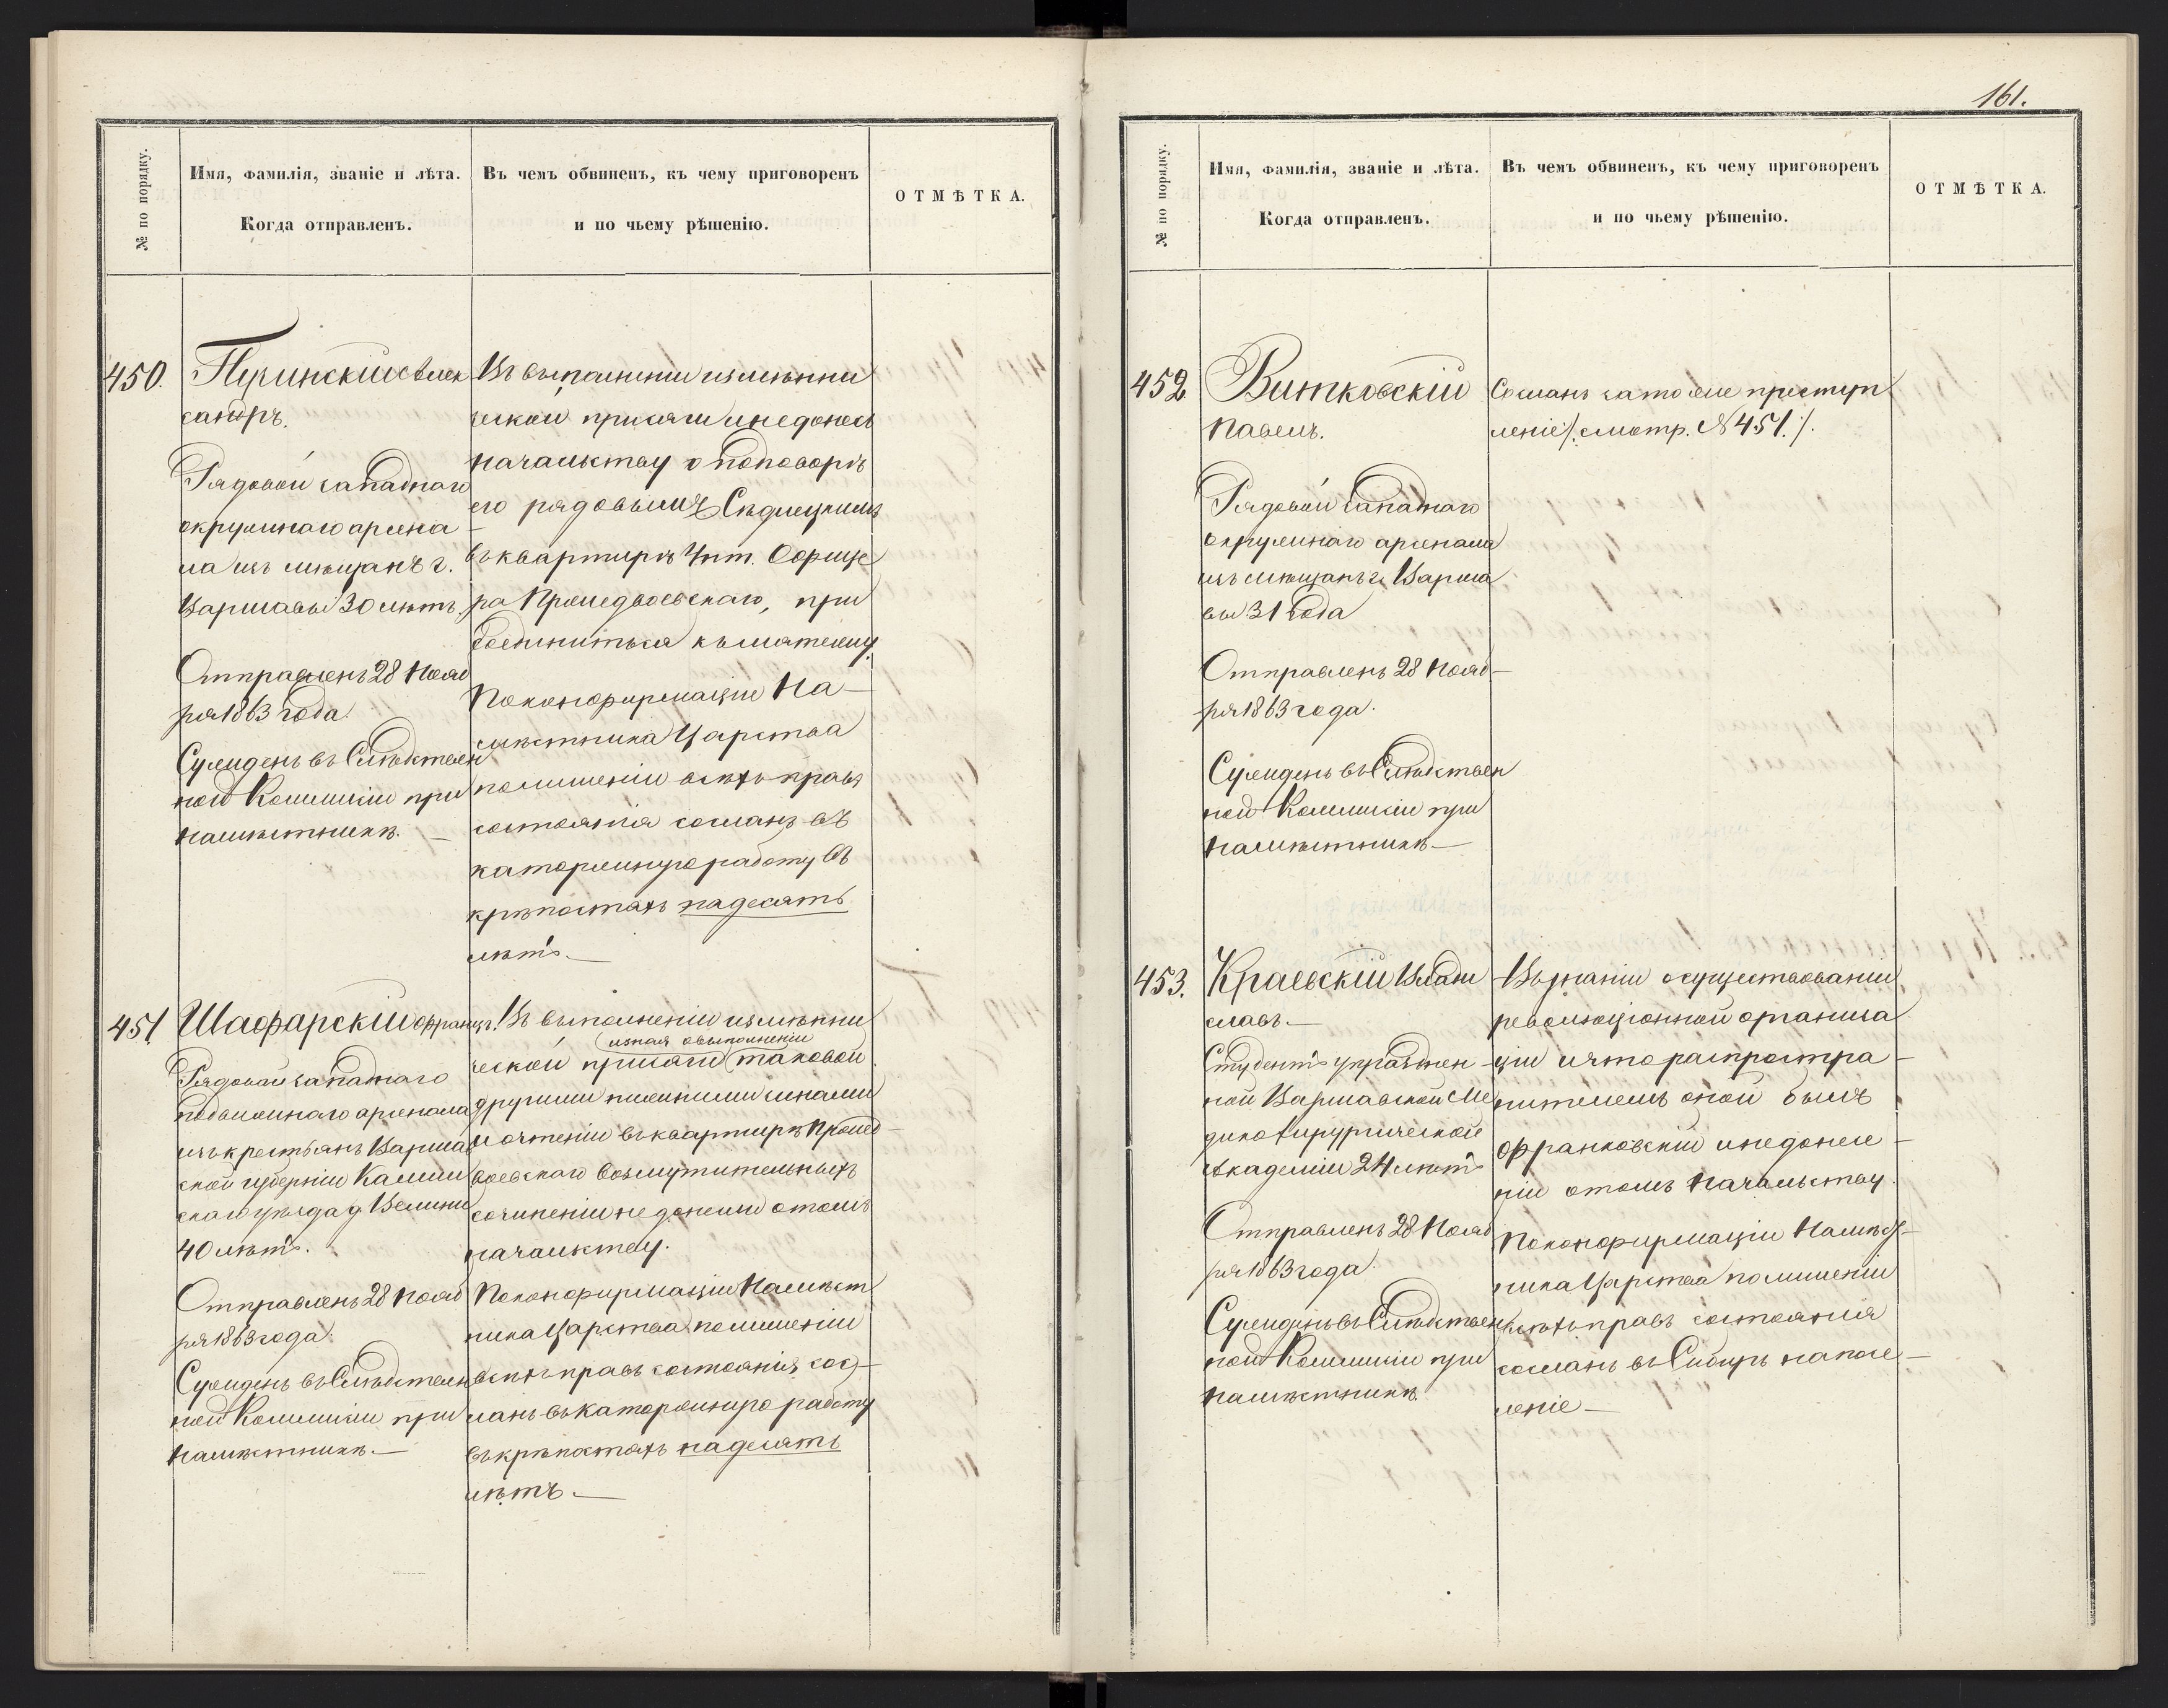 161.
№ по порядку.
Имя, фамилія, званіе и лѣта.
Когда отправленъ.
Въ чемъ обвиненъ, къ чему приговоренъ
и по чьему рѣшенію.
ОТМѢТКА.
450.
Алек
сандръ.
Рядовой западнаго
окружнаго арсена
ла изъ мѣщанъ г.
Варшавы 30 лѣтъ.
Отправленъ 28 Нояб
ря 1863 года.
Сужденъ въ Слѣдствен
ной Коммисіи при
Намѣстникѣ. —
Въ выполненіи измѣнни
ческой присяги и недонесъ
начальству о подговорѣ
его рядовымъ Сѣдлецкимъ
въ квартирѣ Унт. Офице
ра Пржедвоевскаго, при
соединиться къ мятежу.
По конфирмаціи На—
мѣстника Царства
по лишеніи всѣхъ правъ
состоянія сосланъ въ
каторжную работу въ
крѣпостяхъ на десять
лѣтъ. —
451
Шафарскій Францъ.
Рядовой западнаго
арсенала
изъ крестьянъ Варшав
ской губерніи Калиш
скаго уѣзда д.
40 лѣтъ.
Отправленъ 28 Нояб
ря 1863 года.
Сужденъ въ Слѣдствен
ной Коммисіи при
Намѣстникѣ. —
Въ выполненіи измѣнни
и зная о выполненіи
ческой присяги таковой
другими нижними чинами
и о чтеніи въ квартирѣ Пржед—
воевскаго возмутительныхъ
сочиненій не донесши о томъ
начальству.
По конфирмаціи Намѣст
ника Царства по лишеніи
всѣхъ правъ состоянія, сос—
ланъ въ каторжную работу
въ крѣпостяхъ на десять
лѣтъ. —
№ по порядку.
Имя, фамилія, званіе и лѣта.
Когда отправленъ.
Въ чемъ обвиненъ, къ чему приговоренъ
и по чьему рѣшенію.
ОТМѢТКА.
452
Витковскій
Павелъ.
Рядовой Западнаго
окружнаго арсенала
изъ мѣщанъ г. Варша
вы 31 года
Отправленъ 28 Нояб—
ря 1863 года.
Сужденъ въ Слѣдствен
ной Коммисіи при
Намѣстникѣ. —
Сосланъ за тоже преступ
леніе /: смотр. № 451. :/.
453.
Краевскій Влади
славъ. —
Студентъ упразднен—
ной Варшавской Ме
дикохирургической
Академіи 24 лѣтъ
Отправленъ 28 Нояб
ря 1863 года.
Сужденъ въ Слѣдствен
ной Коммисіи при
Намѣстникѣ.
Въ знаніи о существованіи
революціонной организа
ціи и что распростра—
нителемъ оной былъ
Франковскій и недонесе—
ніи о томъ Начальству.
По конфирмаціи Намѣст—
ника Царства по лишеніи
всѣхъ правъ состоянія
сосланъ въ Сибирь на посе—
леніе —